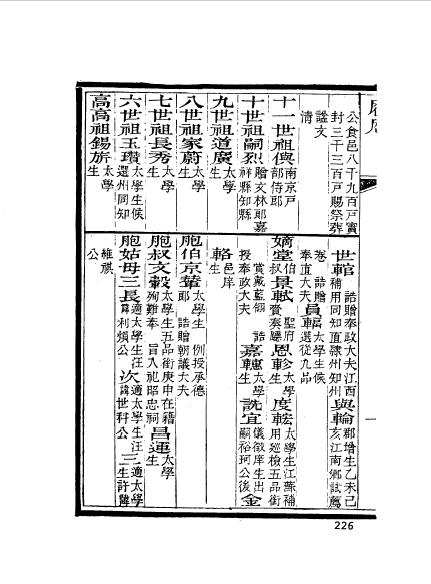 公食邑八千九百戶實
封三千三百戶賜祭葬
諡文
清
十一世祖 南京戶部侍郎
十世祖嗣烈 贈文林郎嘉祥縣知縣
九世祖道廣 太學生
八世祖家蔚 太學生
七世祖長秀 太學生
六世祖玉瓚 太學生候選州同知
高高祖錫旂 太學生
世棺 誥贈奉政大夫江西補用同知直隸州知州 與 郡增生乙未己亥江南鄉試薦
卷 誥贈奉直大夫 員輻 太學生候選從九品
嫡堂伯叔景軾 聖府賫奏 恩軫 太學生 度 太學生江蘇補用巡檢五品銜
賞戴藍翎 誥授奉政大夫 嘉 太學生 詵宜 儀徵庠生出嗣裕珂公後 金
輅 邑庠生
胞伯京華 太學生 例授承德郎 誥贈朝議大夫
胞叔文轂 太學生五品銜庚申在籍殉難奉 旨入祀昭忠祠 昌運 太學生
胞姑母三 長 適太學生汪諱利煩公 次 適太學生汪諱世科公 三 適太學生許諱
維祺公
226